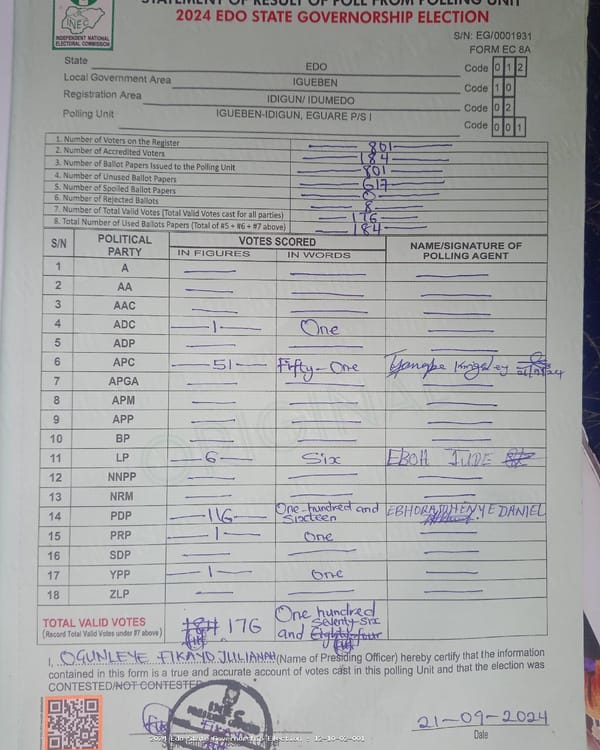 STATEMENT OF RESULT OF POLL FROM POLLING UNIT
2024 EDO STATE GOVERNORSHIP ELECTION
INEC
INDEPENDENT NATIONAL
ELECTORAL COMMISSION
S/N: EG/0001931
FORM EC 8A
State EDO Code 0 1 2
Local Government Area IGUEBEN Code 1 0
Registration Area IDIGUN/ IDUMEDO Code 0 2
Polling Unit IGUEBEN-IDIGUN, EGUARE P/S I Code 0 0 1
1. Number of Voters on the Register 801
2. Number of Accredited Voters 184
3. Number of Ballot Papers Issued to the Polling Unit 801
4. Number of Unused Ballot Papers 617
5. Number of Spoiled Ballot Papers 0
6. Number of Rejected Ballots 8
7. Number of Total Valid Votes (Total Valid Votes cast for all parties) 176
8. Total Number of Used Ballots Papers (Total of #5 + #6 + #7 above) 184
S/N POLITICAL PARTY VOTES SCORED NAME/SIGNATURE OF POLLING AGENT
IN FIGURES IN WORDS
1 A
2 AA
3 AAC
4 ADC 1 One
5 ADP
6 APC 51 Fifty-One
7 APGA
8 APM
9 APP
10 BP
11 LP 6 Six EBOH JUDE
12 NNPP
13 NRM
14 PDP 116 One-hundred and Sixteen DANIEL
15 PRP 1 One
16 SDP
17 YPP 1 One
18 ZLP
TOTAL VALID VOTES
(Record Total Valid Votes under #7 above)
184 176 One hundred
seventy-six
and Eighty-four
I, OGUNLEYE FIKAYO JULIANAH (Name of Presiding Officer) hereby certify that the information
contained in this form is a true and accurate account of votes cast in this polling Unit and that the election was
CONTESTED/NOT CONTESTED
21-09-2024
Date
2024 Edo State Governorship Election - 12-10-02-001